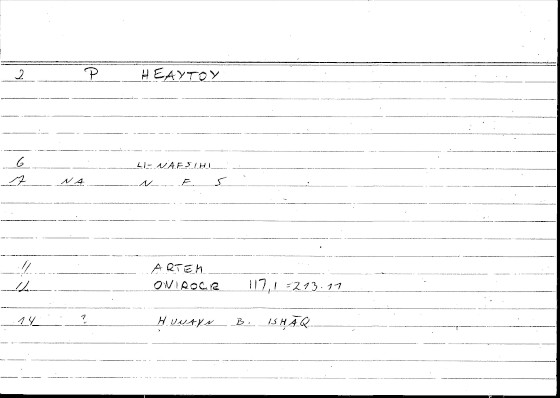 2 P HEAYTOY
6 LI-NAFSIHI
7 NA N F S
11 ARTEM
12 ONIROCR 117,1 = 213.11
14 ? ḤUNAYN B. ISḤĀQ